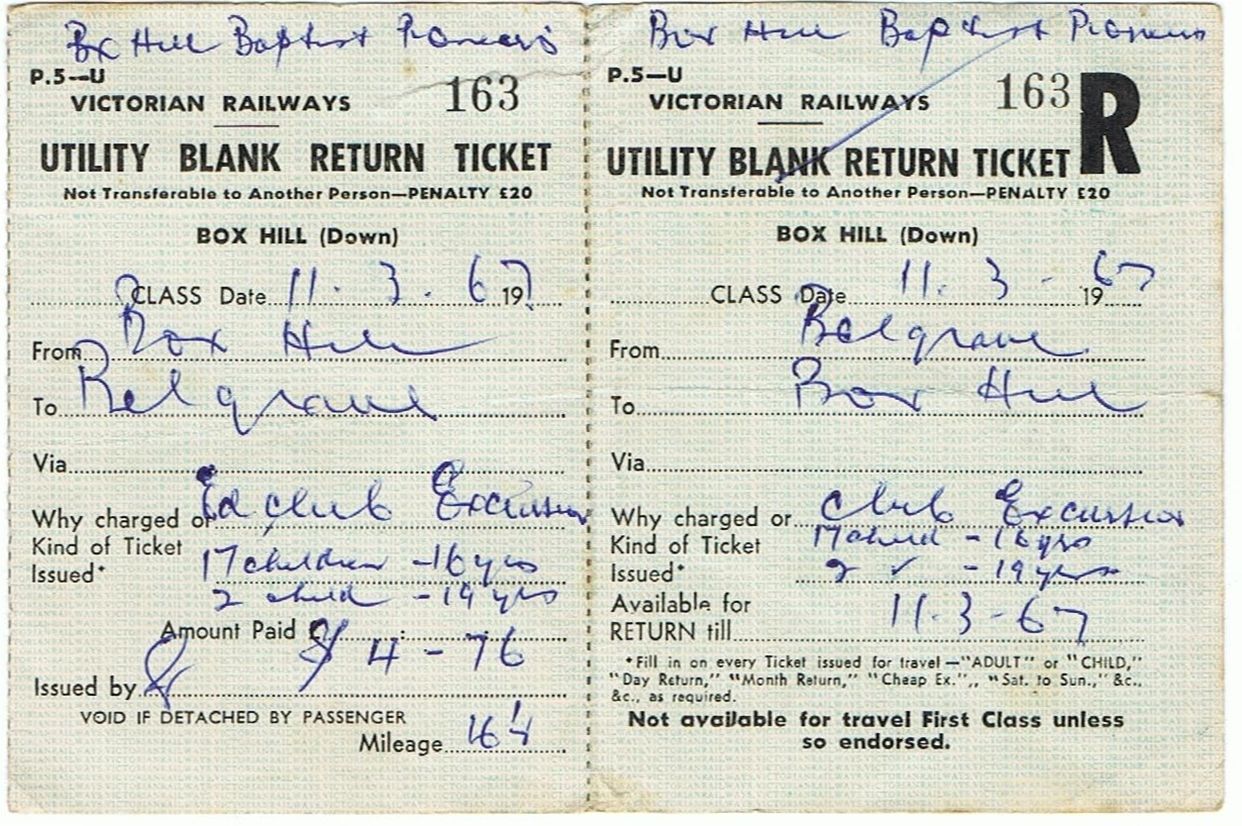 Box Hill Baptist Pioneers
P.5—U
VICTORIAN RAILWAYS
163
UTILITY BLANK RETURN TICKET
Not Transferable to Another Person—PENALTY £20
BOX HILL (Down)
CLASS Date 11.3.67 19
From Box Hill
To Belgrave
Via
Why charged or Ed club Excursion
Kind of Ticket
Issued* 17 children - 16 yrs
2 child - 19 yrs
Amount Paid £ $4-76
Issued by
VOID IF DETACHED BY PASSENGER
Mileage 16¼
Box Hill Baptist Pioneers
P.5—U
VICTORIAN RAILWAYS
163 R
UTILITY BLANK RETURN TICKET
Not Transferable to Another Person—PENALTY £20
BOX HILL (Down)
CLASS Date 11.3-67 19
From Belgrave
To Box Hill
Via
Why charged or Club Excursion
Kind of Ticket 17 child - 16 yrs
Issued* 2 ✓ - 19 yrs
Available for
RETURN till 11-3-67
*Fill in on every Ticket issued for travel—"ADULT" or "CHILD,"
"Day Return," "Month Return," "Cheap Ex.",, "Sat. to Sun.," &c.,
&c., as required.
Not available for travel First Class unless
so endorsed.